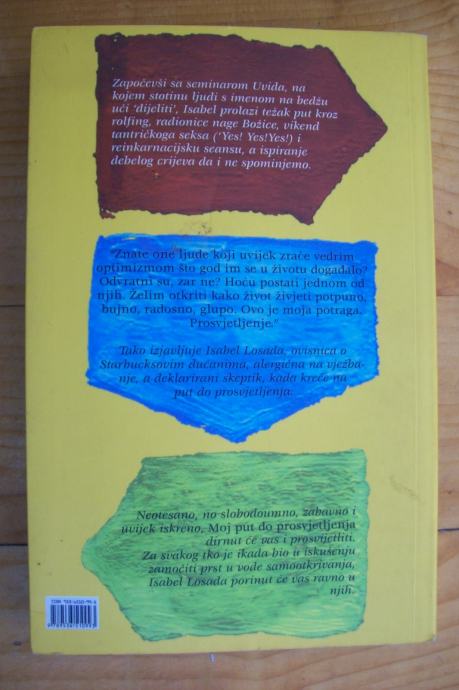 Započevši sa seminarom Uvida, na
kojem stotinu ljudi s imenom na bedžu
uči 'dijeliti', Isabel prolazi težak put kroz
rolfing, radionice nage Božice, vikend
tantričkoga seksa ('Yes! Yes!Yes!) i
reinkarnacijsku seansu, a ispiranje
debelog crijeva da i ne spominjemo.
"Znate one ljude koji uvijek zrače vedrim
optimizmom što god im se u životu događalo?
Odvratni su, zar ne? Hoću postati jednom od
njih. Želim otkriti kako život živjeti potpuno,
bujno, radosno, glupo. Ovo je moja potraga.
Prosvjetljenje."
Tako izjavljuje Isabel Losada, ovisnica o
Starbucksovim dućanima, alergična na vježba-
nje, a deklarirani skeptik, kada kreće na
put do prosvjetljenja.
Neotesano, no slobodoumno, zabavno i
uvijek iskreno, Moj put do prosvjetljenja
dirnut će vas i prosvijetliti.
Za svakog tko je ikada bio u iskušenju
zamočiti prst u vode samootkrivanja,
Isabel Losada porinut će vas ravno u
njih.